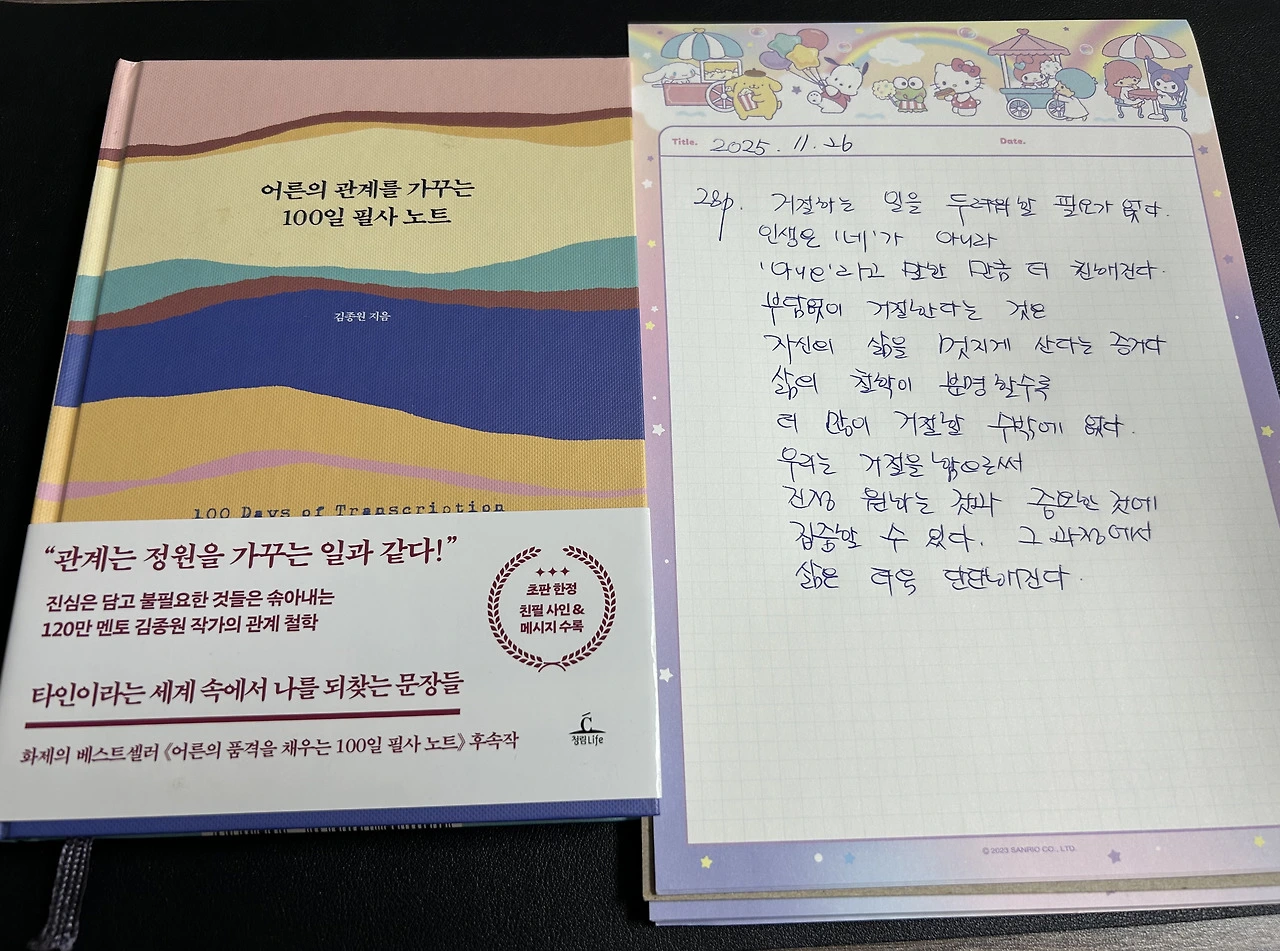 어른의 관계를 가꾸는
100일 필사 노트
김종원 지음
100 Days of Transcription
“관계는 정원을 가꾸는 일과 같다!”
진심은 담고 불필요한 것들은 솎아내는
120만 멘토 김종원 작가의 관계 철학
초판 한정
친필 사인 &
메시지 수록
타인이라는 세계 속에서 나를 되찾는 문장들
화제의 베스트셀러 《어른의 품격을 채우는 100일 필사 노트》 후속작
청림Life
Title. 2025. 11. 26 Date.
28p. 거절하는 일을 두려워할 필요가 없다.
인생은 '네'가 아니라
'아니오'라고 말한 만큼 더 친해진다.
부담없이 거절한다는 것은
자신의 삶을 멋지게 산다는 증거다
삶의 철학이 분명할수록
더 많이 거절할 수밖에 없다.
우리는 거절을 함으로써
진정 원하는 것과 중요한 것에
집중할 수 있다. 그 과정에서
삶은 더욱 단단해진다.
© 2023 SANRIO CO., LTD.